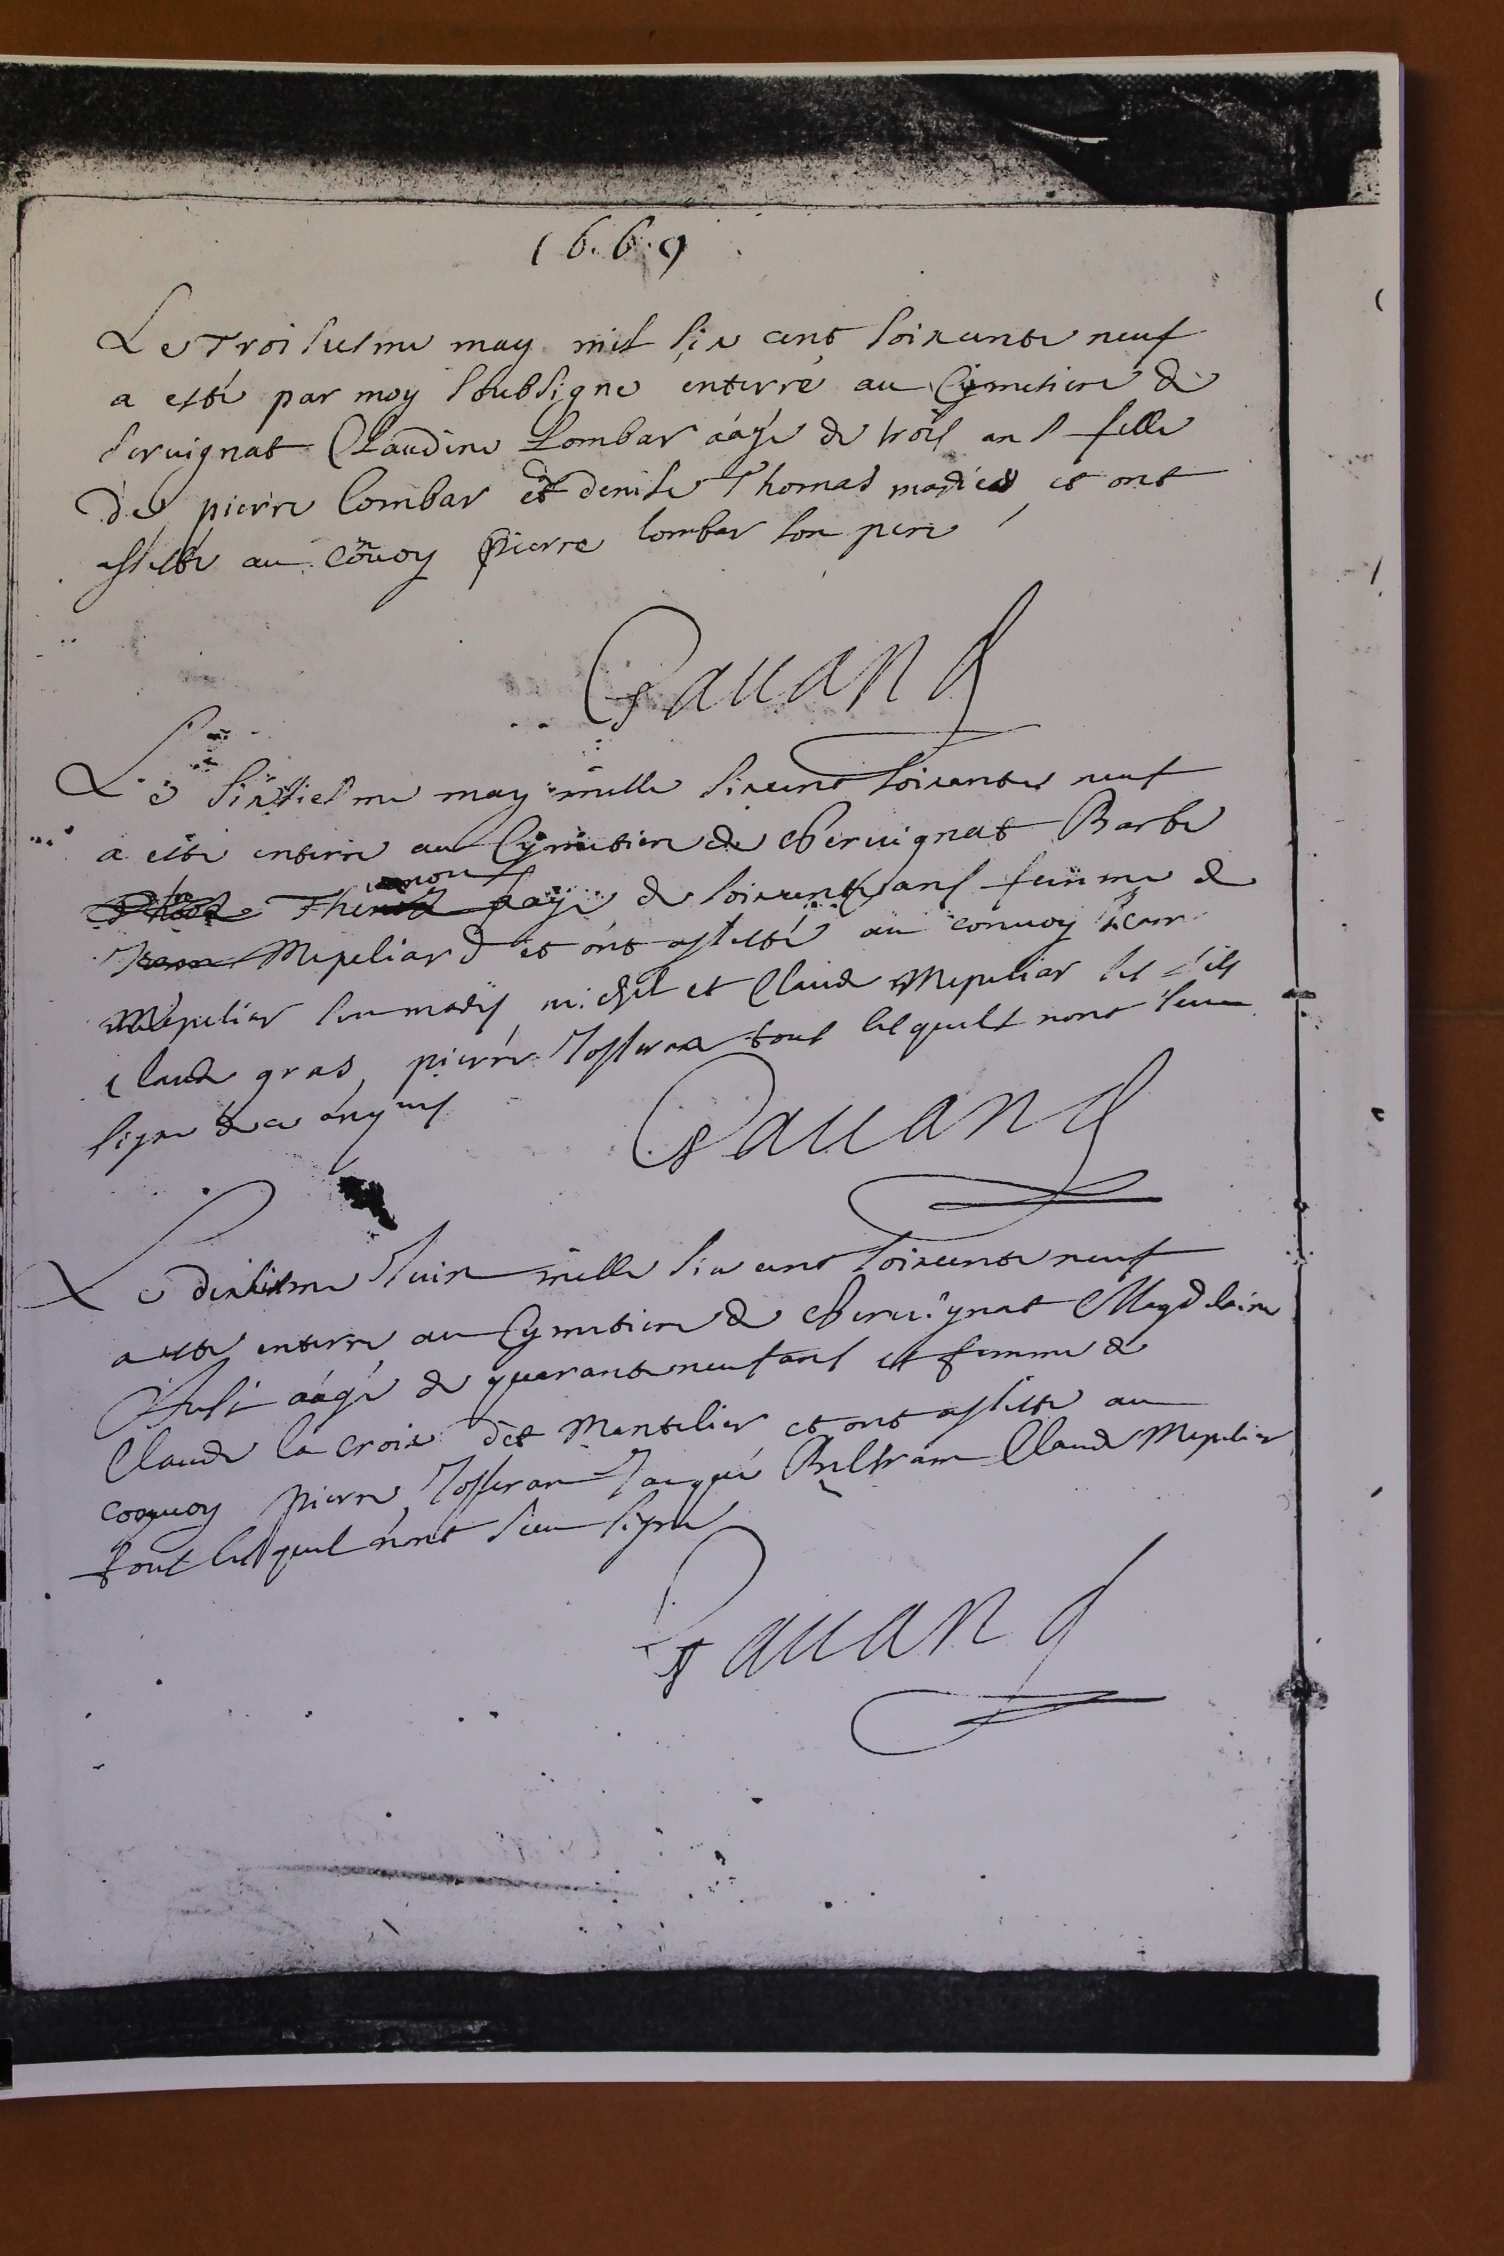 1669
Le troisiesme may mil six cent soixante neuf
a esté par moy soubsigné enterré au Cymetiere de
servignat Claudine Lombar aágé de trois ans fille
de pierre lombar et denise Thomas mariés et ont
assisté au convoy pierre lombar son pere
Pauand
Le sixiesme may mille sixcent soixante neuf
a esté enterre au Cymetiere de Chervignat Barbe
Thenou aagé de soixante ans femme de
Jean Mepeliard et ont assisté au convoy Jean
Mepelier son marys michel et Claude Mepeliar ses fils
claude gras, pierre Josseran tous lesquels nont seu
signé de ce enquis
Pauand
Le dixiesme Juin mille six cent soixante neuf
a esté enterre au Cymetiere de Chervignat Magdelaine
aágé de quarante neuf ans et femme de
Claude la croix dit Mantelier et ont assisté au
convoy pierre Josseran Jacque Beltram Claude Mepelier
tout lesquel nont seu signé
Pauand